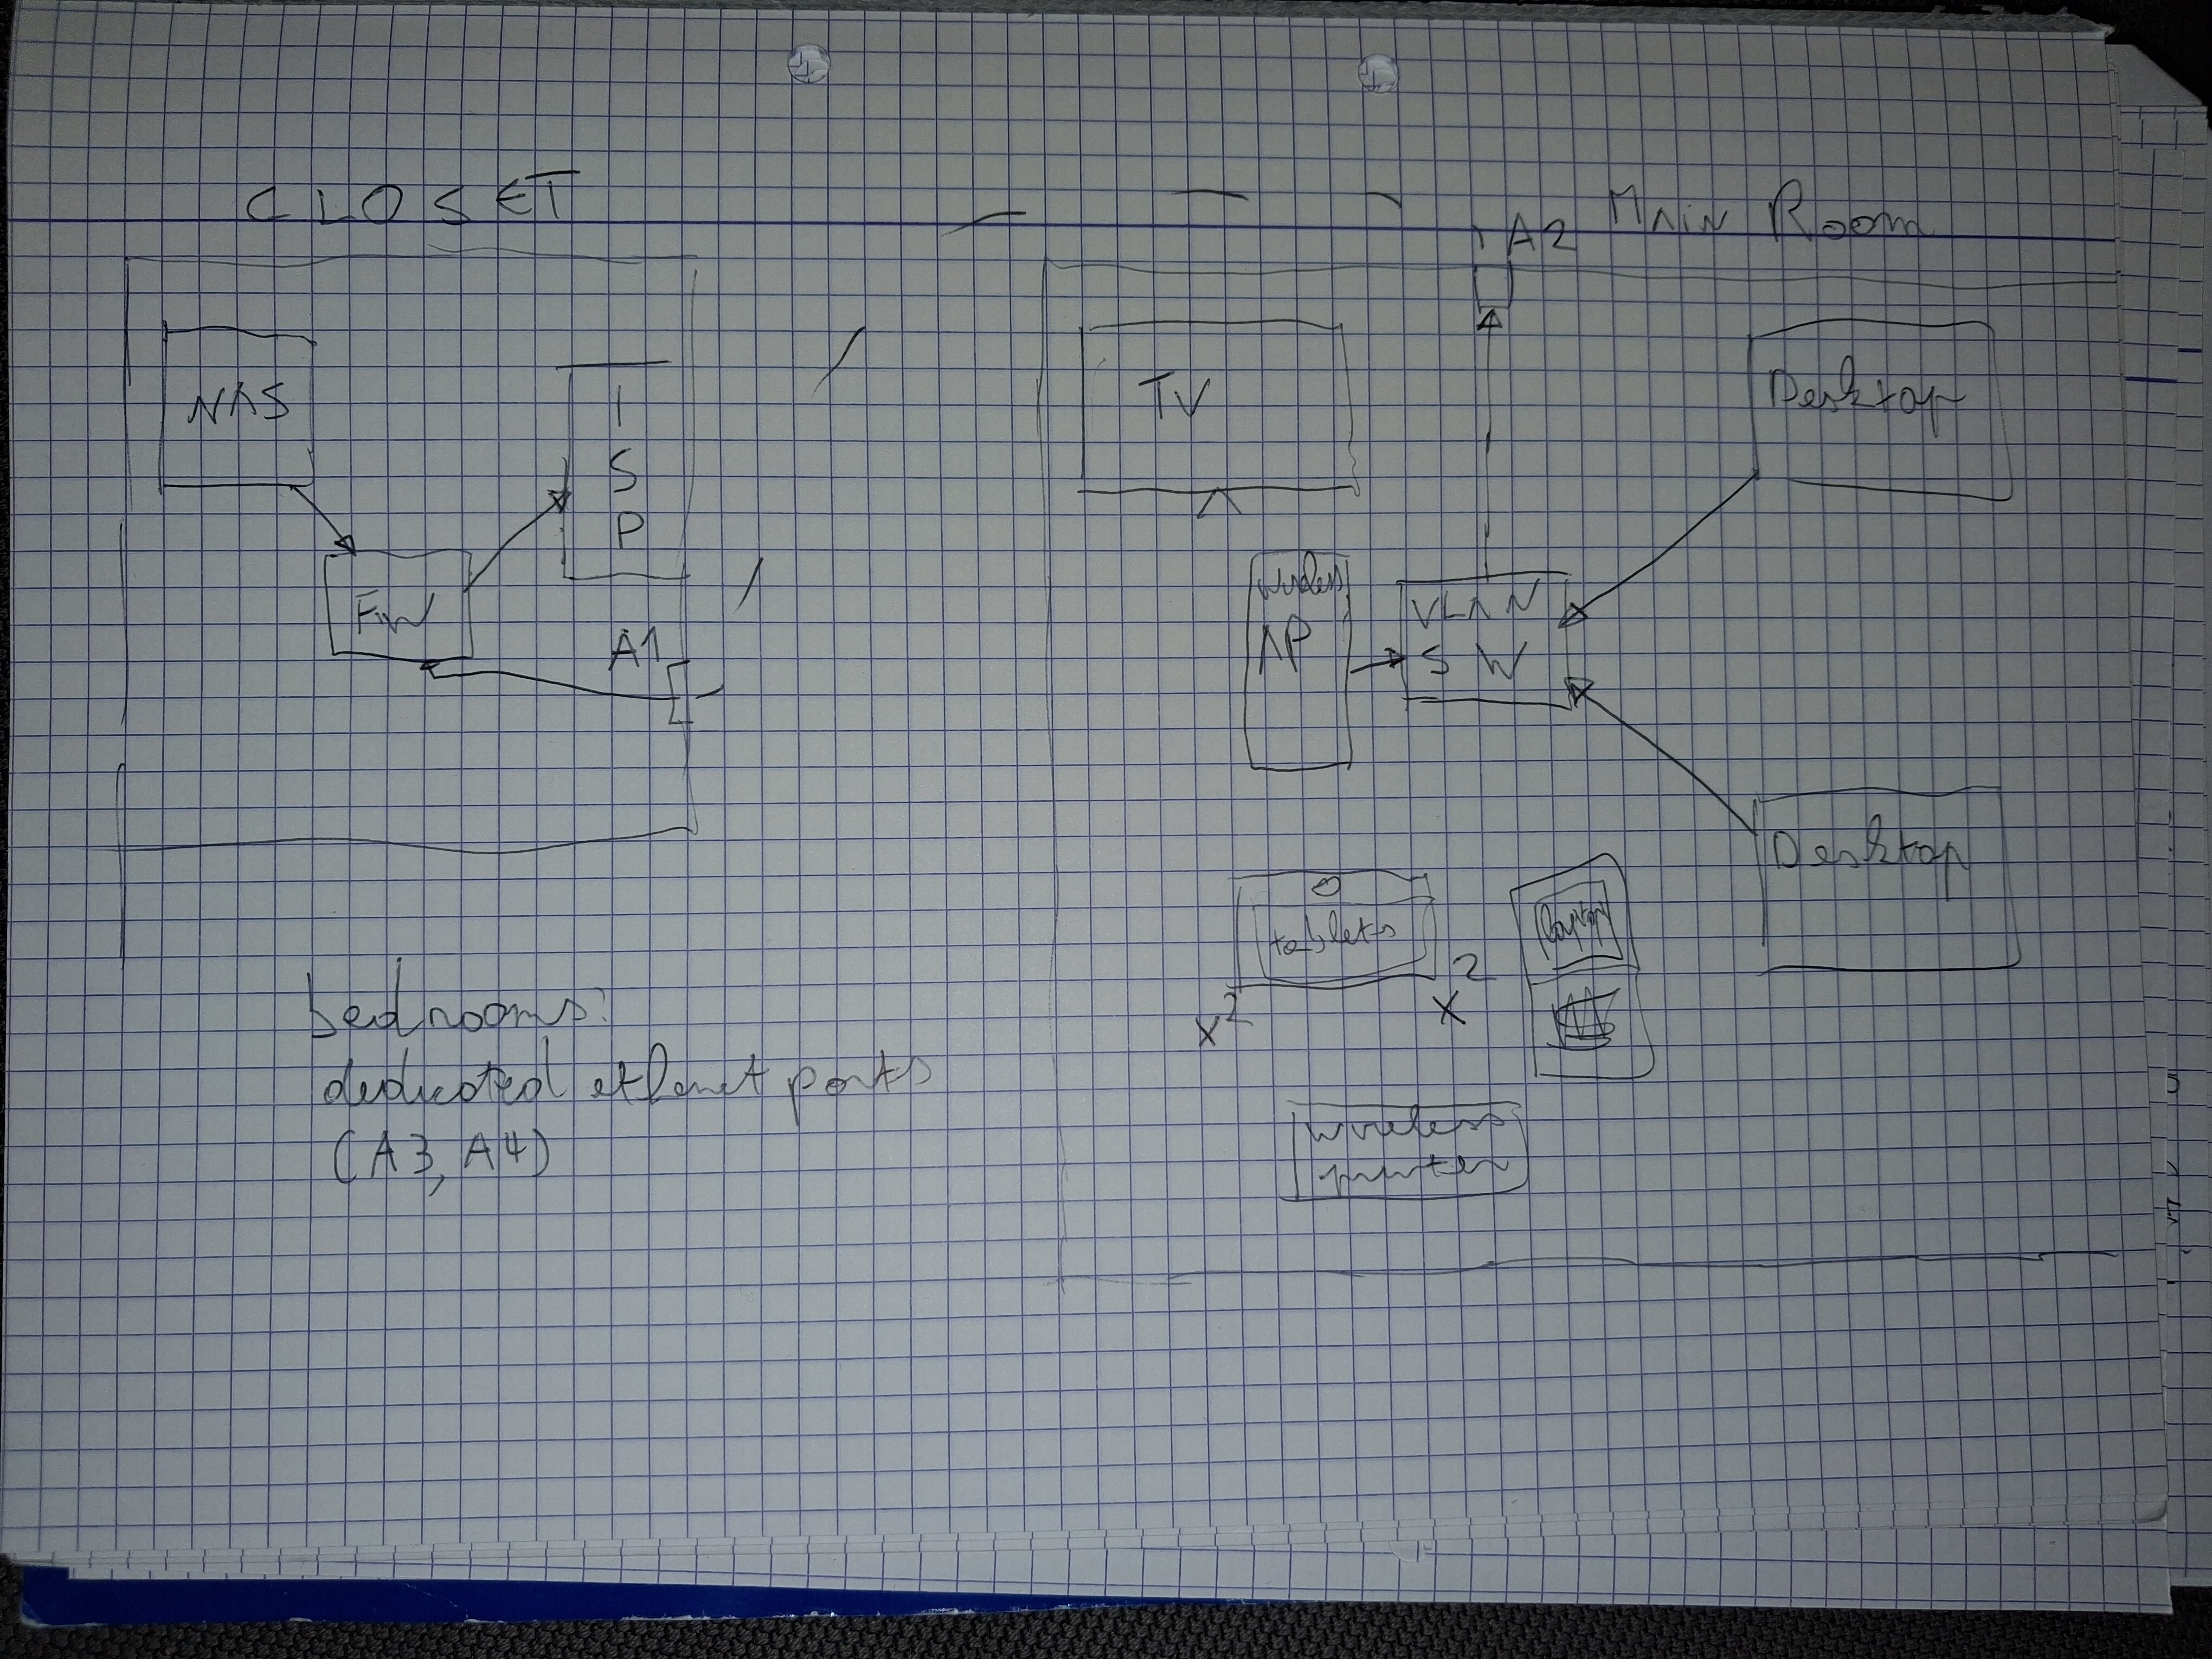 CLOSET
NAS
I
S
P
FW
A1
A2 MAIN ROOM
TV
Desktop
wireless
AP
VLAN
SW
Desktop
tablets
x2
laptop
x2
wireless
printer
bedrooms:
dedicated ethernet ports
(A3, A4)